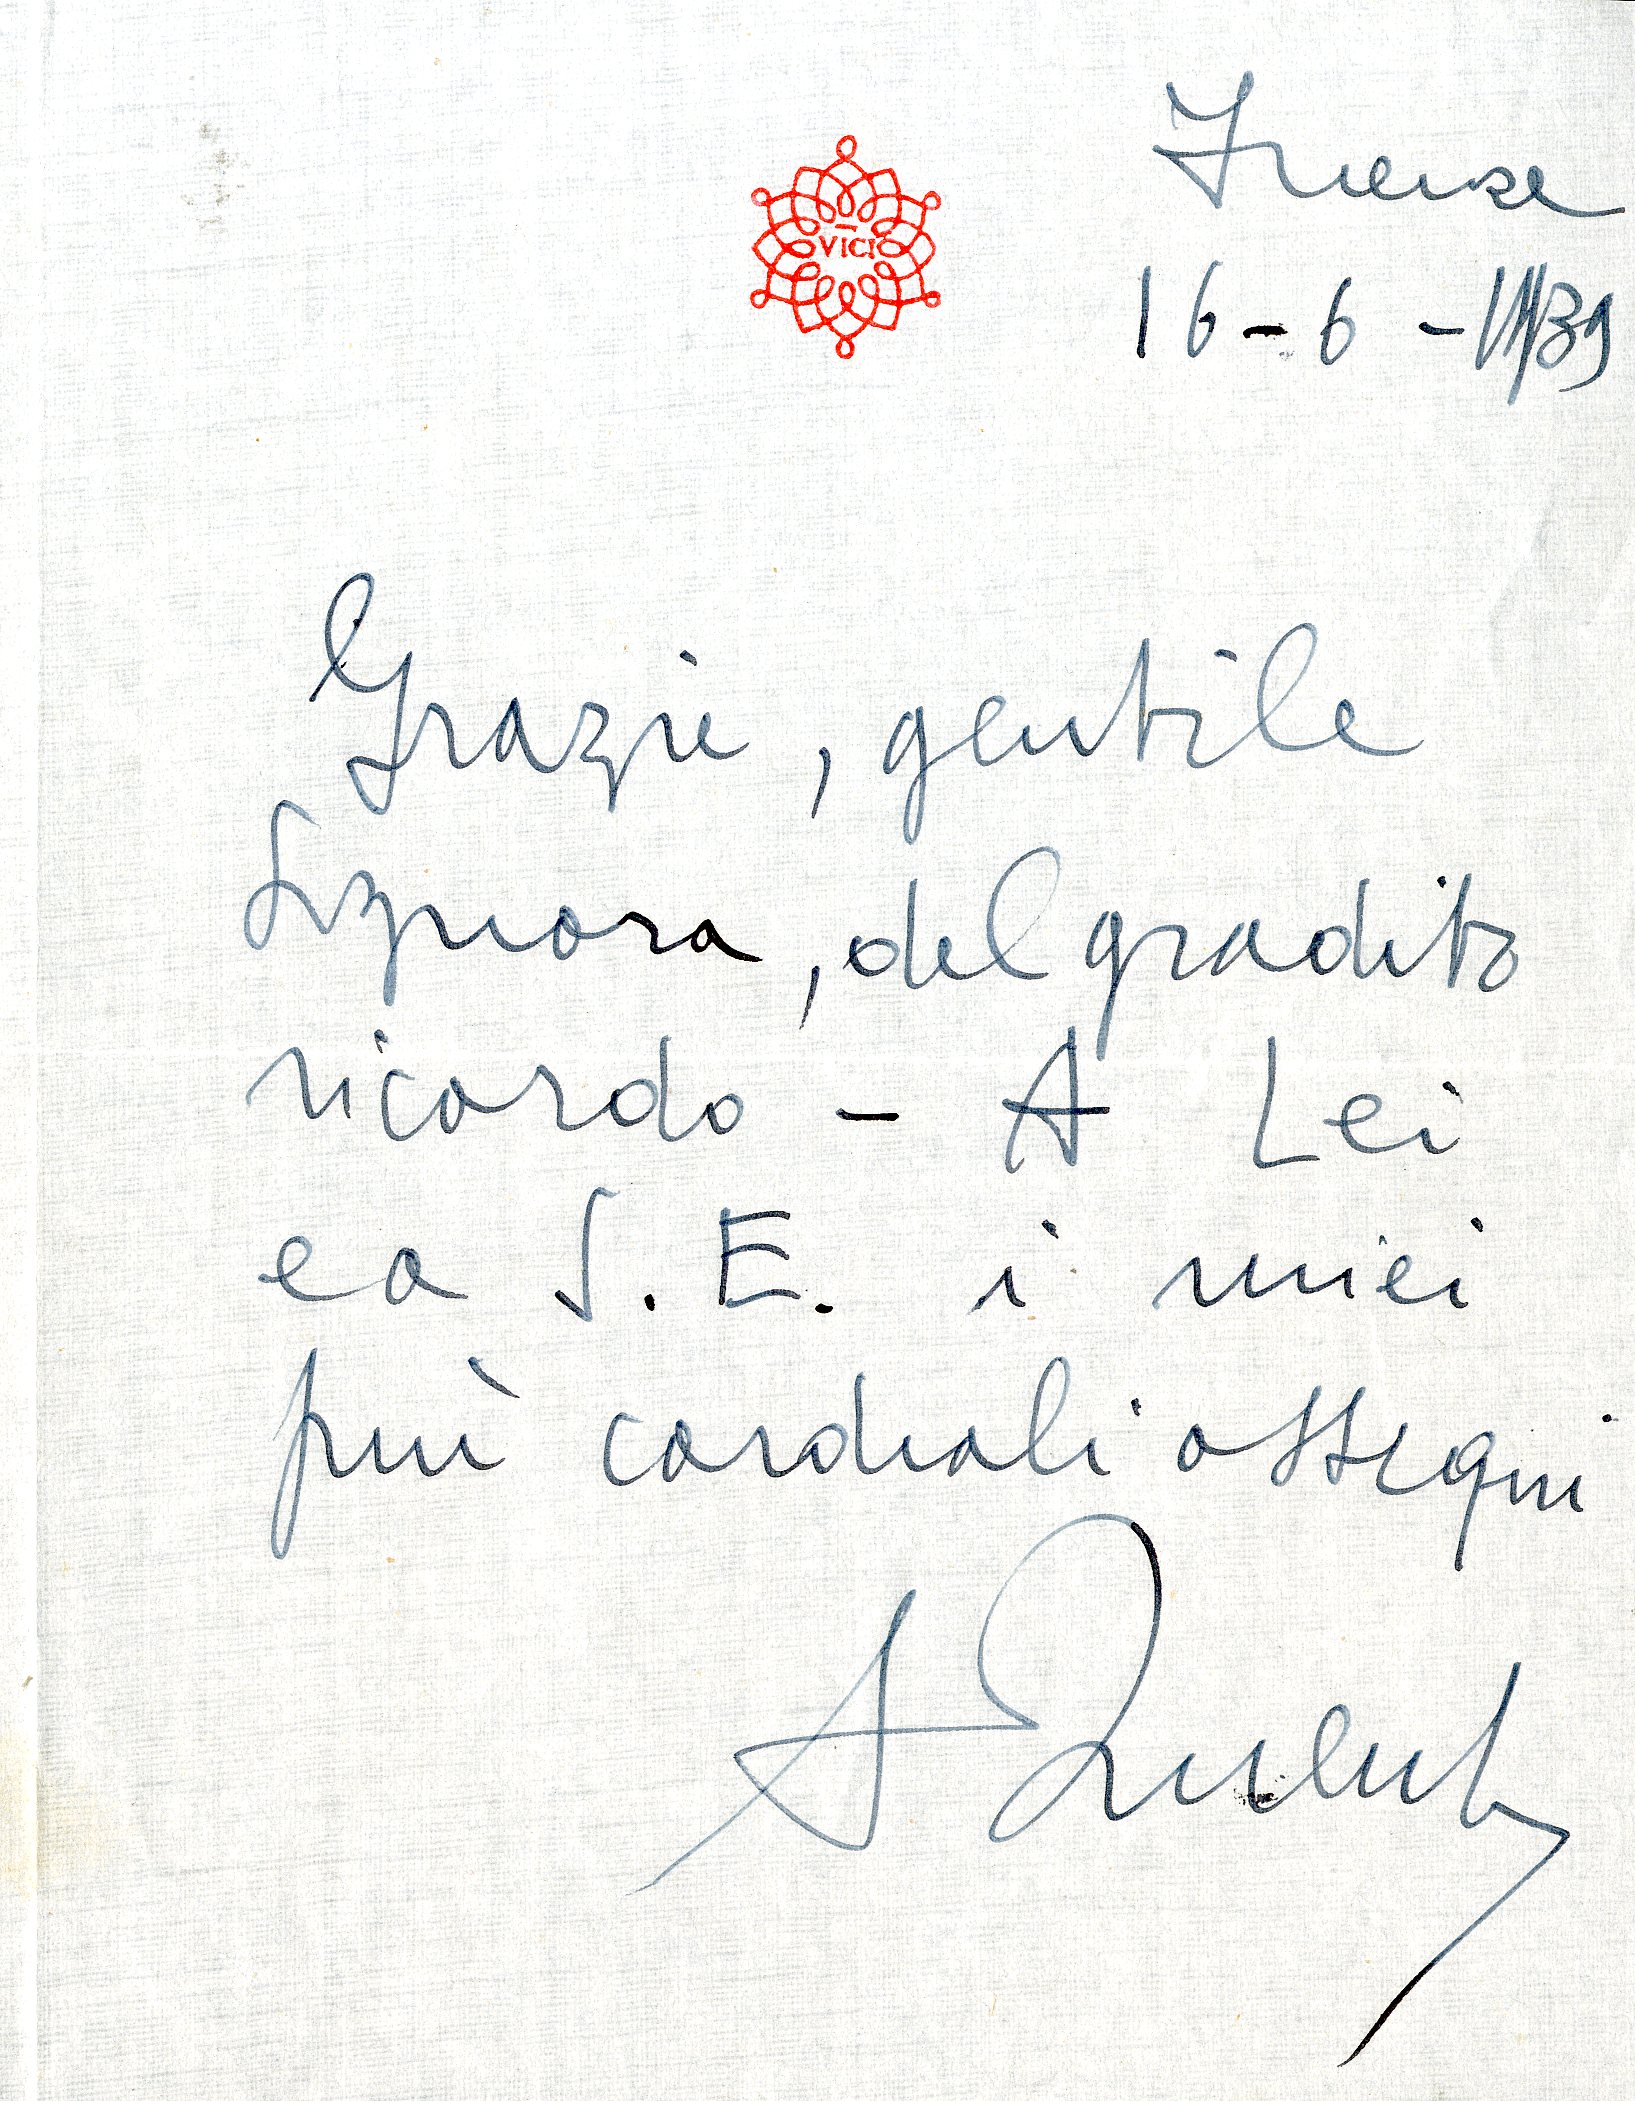 VICI
Firenze
16-6-1939
Grazie, gentile
Signora, del gradito
ricordo - A Lei
e a S. E. i miei
più cordiali ossequi
A